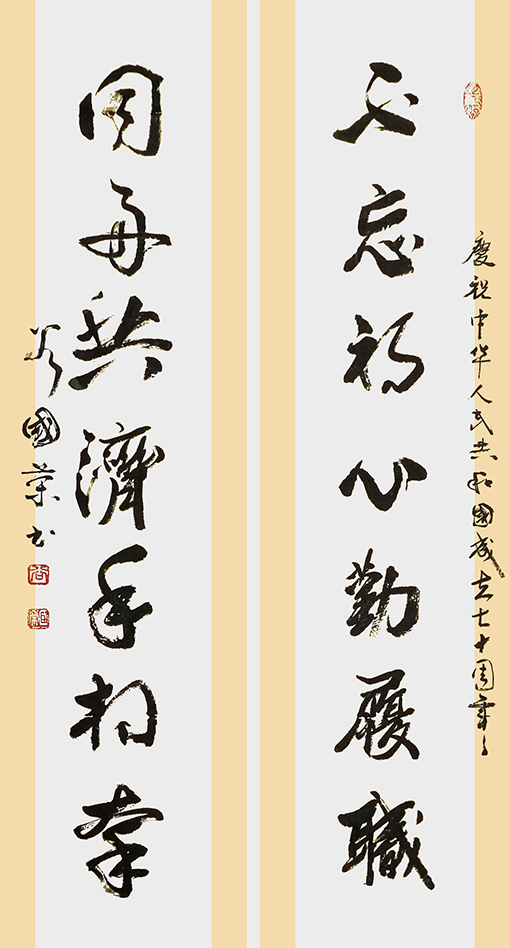 慶祝中华人民共和國成立七十周年
不忘初心勤履職
同舟共濟手相牵
國荣书